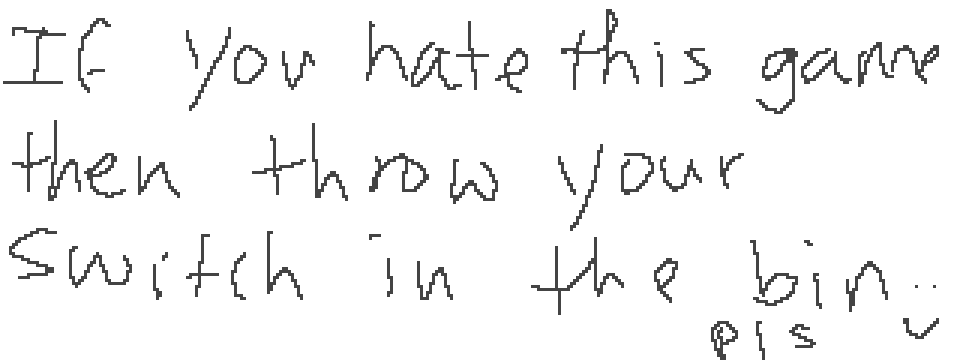 If you hate this game
then throw your
switch in the bin
pls